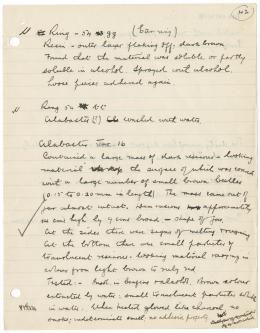 42
Ring - 54 gg (Earring)
Resin - outer layer flaking off, dark brown
Found that the material was soluble or partly
soluble in alcohol. Sprayed with alcohol.
Loose pieces adhered again
Ring 54 tt
Alabaster (?) washed with water
Alabaster 16
Contained a large mass of dark resinous-looking
material the surface of which was covered
with a large number of small brown beetles
(0.15 to 0.20 mm in length). The mass came out of
jar almost intact. approximately
cms high by 9 cms broad - shape of jar.
At the sides there was signs of melting
At the bottom there was small proportion of
translucent resinous-looking material varying in
colour from light brown to ruby red
Tested - Mass in benzene alcohol. Brown colour
extracted by water: small translucent particles soluble
in water. When heated glowed like charcoal no
smoke, indeterminate smell no adhesive property